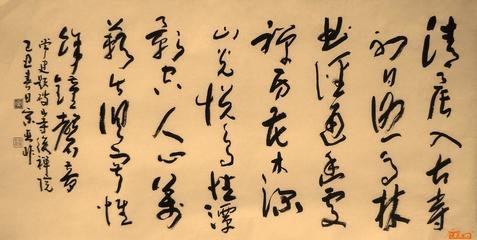 清晨入古寺
初日照高林
曲徑通幽處
禪房花木深
山光悦鳥性潭
影空人心萬
籟此俱寂惟
餘鐘磬音
常建題破山寺後禪院
丑春日